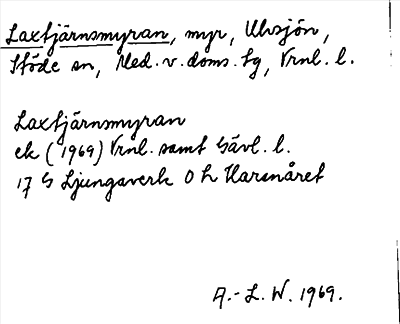 Laxtjärnsmyran, myr, Ulvsjön,
Stöde sn, Med.v.doms.tg, Vrnl. l.
Laxtjärnsmyran
ek (1969) Vrnl. samt Gävl. l.
17 G Ljungaverk 0 h Harsnåret
A.-L. W. 1969.